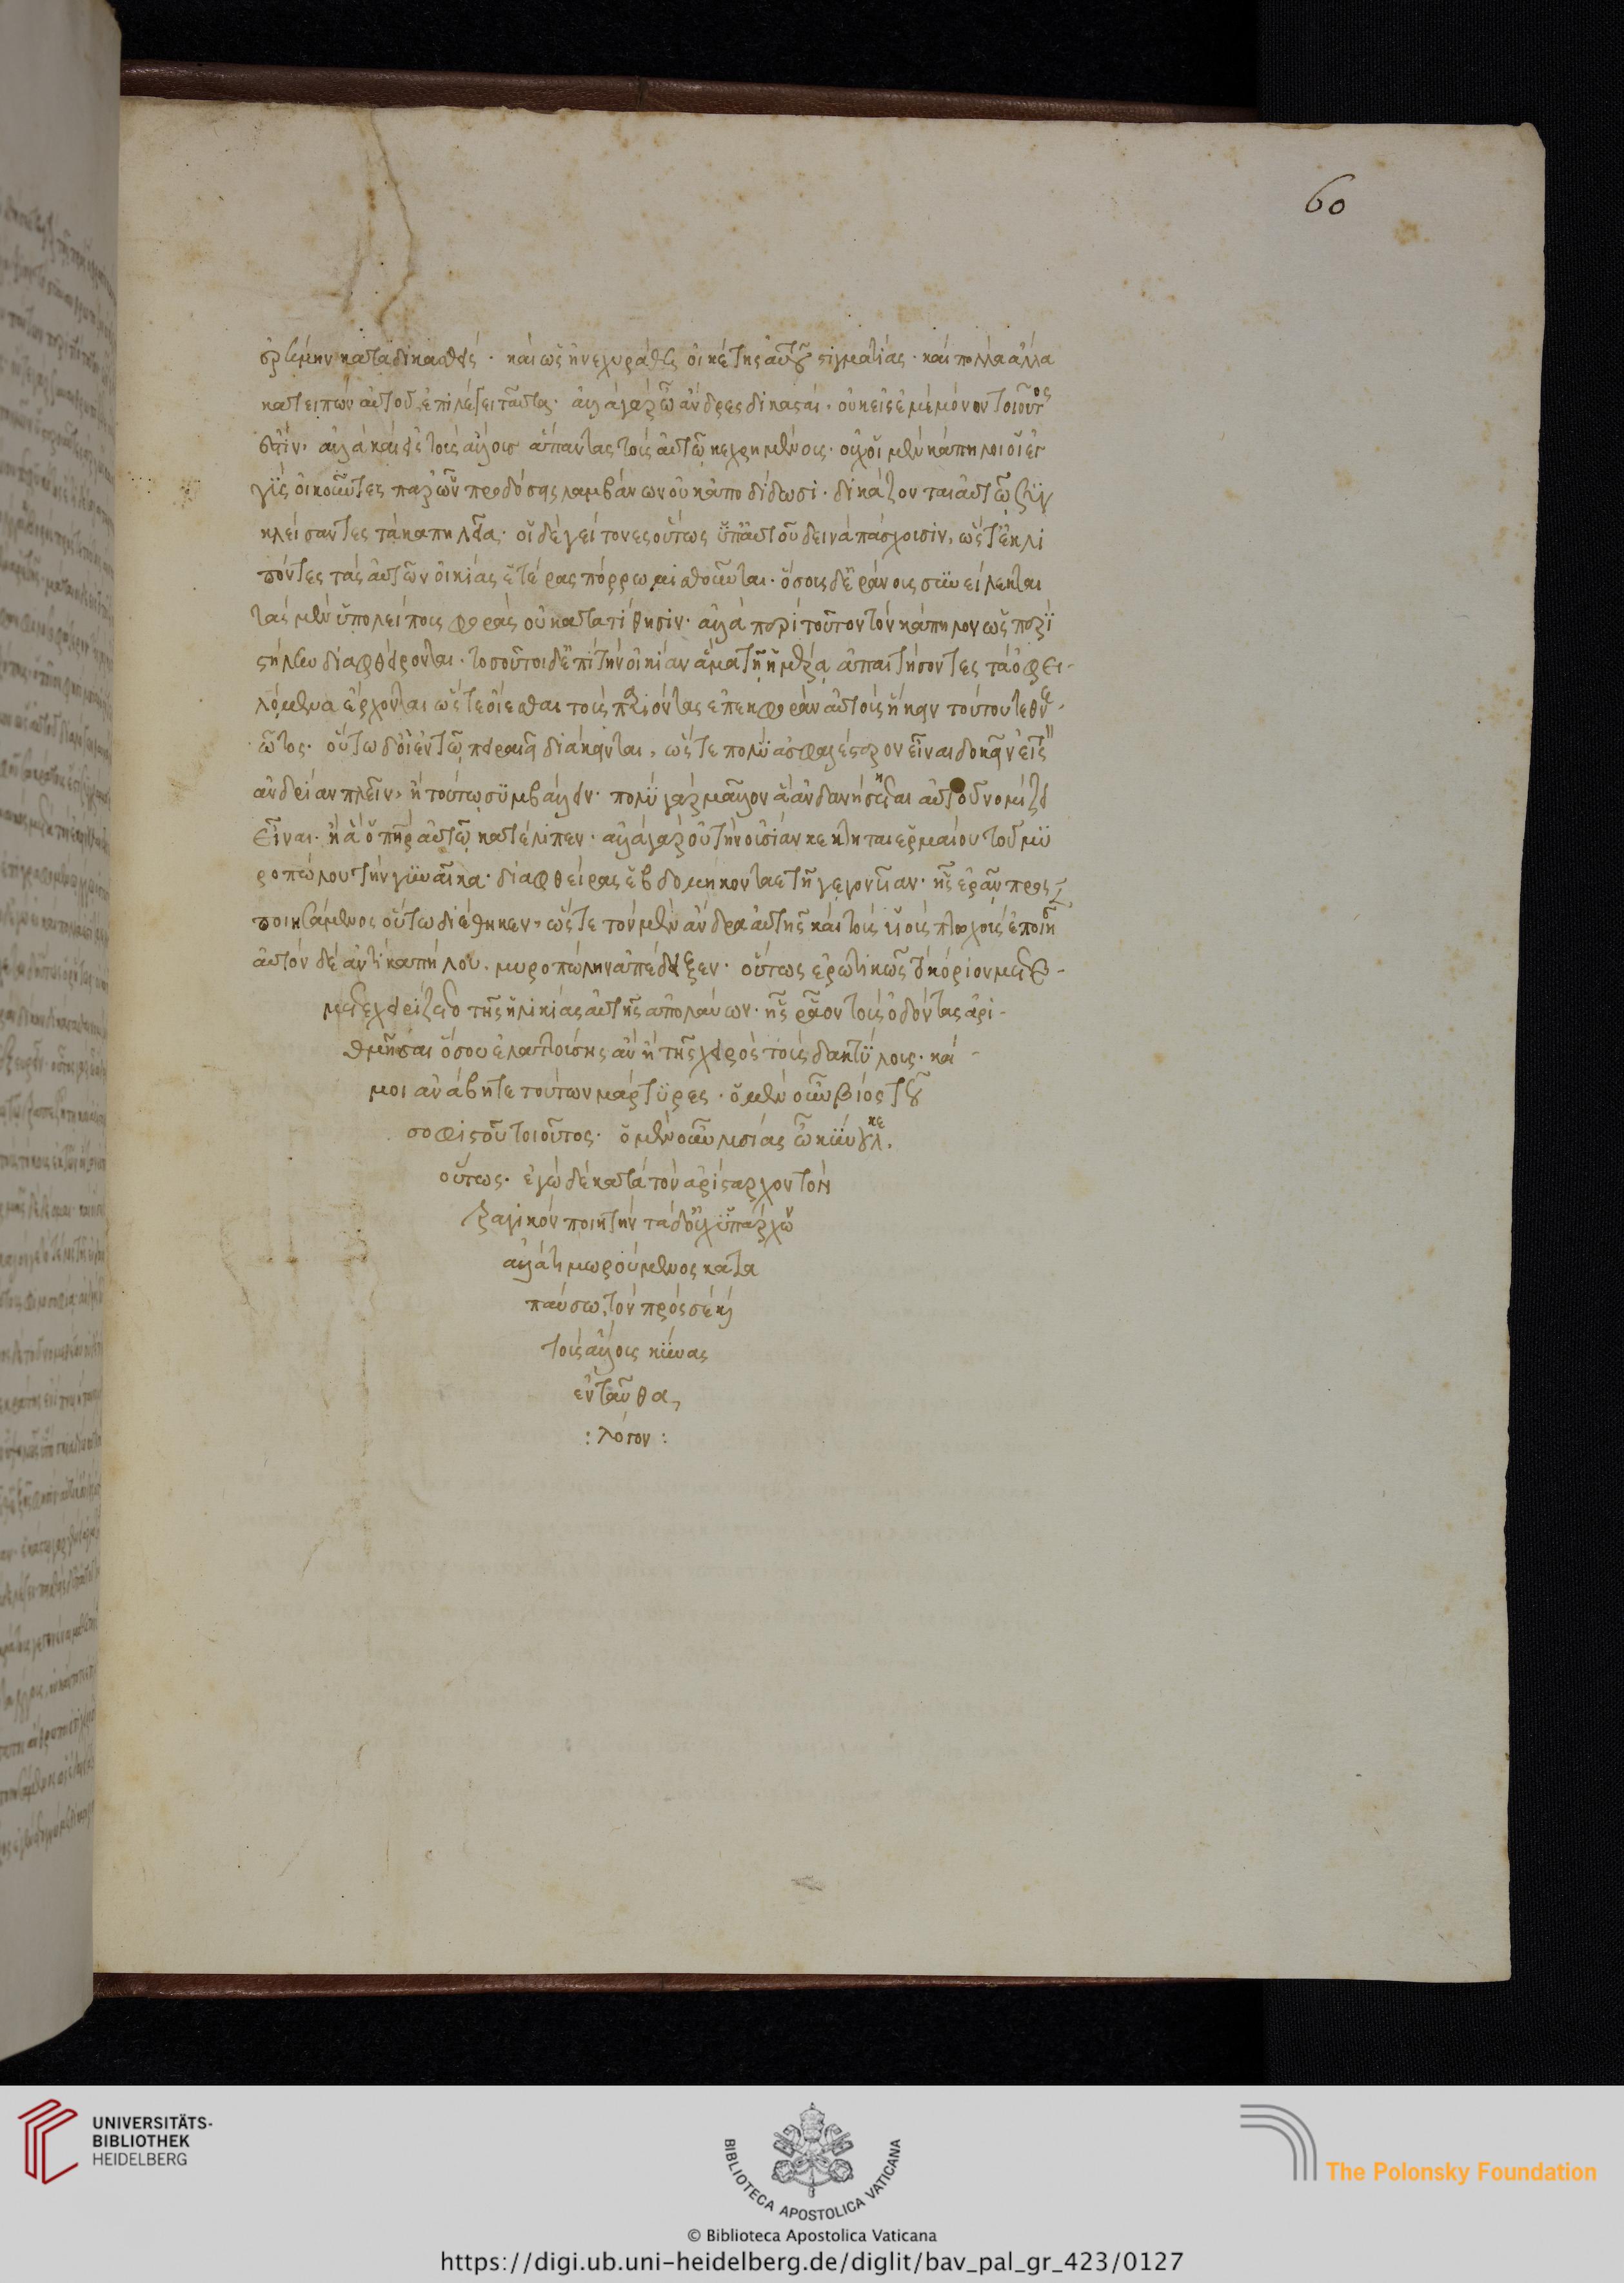 60
ὀρλημην καταδικασθείς · καὶ ὡς ἠνεχυράσθη οἰκέτης αὐτοῦ στιγματίας · καὶ πολλὰ ἄλλα
κατειπὼν αὐτοῦ ἐπιλέγει ταῦτα· ἀλλὰ γὰρ ὦ ἄνδρες δικασταί · οὐκ εἰς ἐμὲ μόνον τοιοῦτος
ἐστίν· ἀλλὰ καὶ εἰς τοὺς ἄλλους ἅπαντας τοὺς αὐτῶ κεχρημένους· οὐχ οἱ μὲν κάπηλοι οἱ ἐγ
γὺς οἰκοῦντες παρ' ὧν προδόσεις λαμβάνων οὐκ ἀποδίδωσι · δικάζονται αὐτῶ συγ
κλείσαντες τὰ καπηλεῖα· οἱ δὲ γείτονες οὕτως ὑπ' αὐτοῦ δεινὰ πάσχουσιν, ὥστ' ἐκλι
πόντες τὰς αὑτῶν οἰκίας ἑτέρας πόρρω μισθοῦνται· ὅσοις δ' ἐράνους συνείλεκται
τὰς μὲν ὑπολείπους φορὰς οὐ κατατίθησιν· ἀλλὰ περὶ τοῦτον τὸν κάπηλον ὡς περὶ
στήλην διαφθείρονται · τοσοῦτοι δ' ἐπὶ τὴν οἰκίαν ἅμα τῆ ἡμέρα ἀπαιτήσοντες τὰ ὀφει-
λόμενα ἔρχονται ὥστε οἴεσθαι τοὺς παριόντας ἐπ' ἐκφορὰν αὐτοὺς ἥκειν τούτου τεθνε-
ῶτος· οὕτω δ' οἱ ἐν τῶ πειραιεῖ διάκεινται, ὥστε πολὺ ἀσφαλέστερον εἶναι δοκεῖν εἰς
ἀνδρίαν πλεῖν, ἢ τούτω συμβάλλειν· πολὺ γὰρ μᾶλλον ἃ ἂν δανείσηται αὑτοῦ νομίζει
εἶναι· ἢ ἃ ὁ πατὴρ αὐτῶ κατέλιπεν · ἀλλὰ γὰρ οὐ τὴν οὐσίαν κέκτηται ἑρμαίου τοῦ μυ
ροπώλου τὴν γυναῖκα· διαφθείρας ἑβδομήκοντα ἔτη γεγονυῖαν· ἧς ἐρᾶν προσ
ποιησάμενος οὕτω διέθηκεν, ὥστε τὸν μὲν ἄνδρα αὐτῆς καὶ τοὺς υἱοὺς πτωχοὺς ἐποίησεν
αὑτὸν δὲ ἀντὶ καπήλου · μυροπώλην ἀπέδειξεν · οὕτως ἐρωτικῶς τὸ κόριον μετε-
μετεχειρίζετο τῆς ἡλικίας αὐτῆς ἀπολαύων· ἧς ῥᾶον τοὺς ὀδόντας ἀρι-
θμῆσαι ὅσου ἐλάττους ἦσαν ἢ τῆς χειρὸς τοὺς δακτύλους · καί-
μοι ἀνάβητε τούτων μάρτυρες · ὁ μὲν οὖν βίος τοῦ
σοφιστοῦ τοιοῦτος· ὁ μὲν οὖν λυσίας ὦ κύνουλκε
οὕτως· ἐγὼ δὲ κατὰ τὸν ἀρίσταρχον τὸν
τραγικὸν ποιητὴν τάδ' οὐχ ὑπάρχων
ἀλλὰ τιμωρούμενος κατα
παύσω, τὸν πρὸς σὲ καὶ
τοὺς ἄλλους κύνας
ἐνταῦθα,
: λόγον :
UNIVERSITÄTS-
BIBLIOTHEK
HEIDELBERG
BIBLIOTECA APOSTOLICA VATICANA
The Polonsky Foundation
© Biblioteca Apostolica Vaticana
https://digi.ub.uni-heidelberg.de/diglit/bav_pal_gr_423/0127